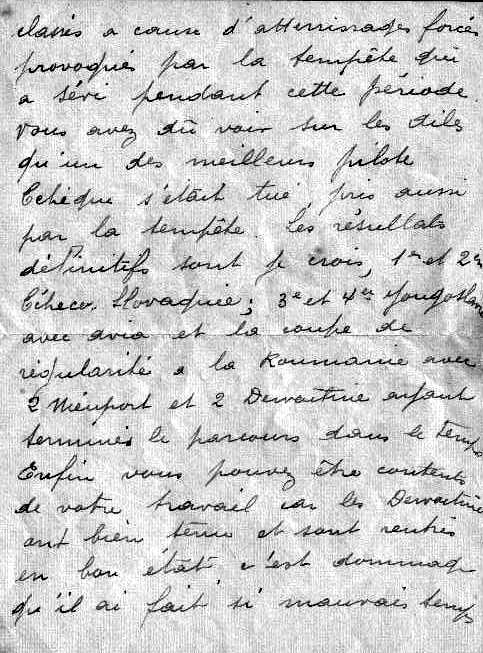 classés a cause d'atterrissages forcés
provoqués par la tempête qui
a sévi pendant cette période.
vous avez dû voir sur les
qu'un des meilleurs pilote
Tchèque s'était tué, pris aussi
par la tempête. Les résultats
définitifs sont je crois, 1er et 2em
Tcheco-Slovaquie; 3e et 4em Yougoslavie
avec avia et la coupe de
régularité a la Roumanie avec
2 Nieuport et 2 Dewoitine ayant
terminés le parcours dans le temps
Enfin vous pouvez être contents
de votre travail car les Dewoitine
ont bien tenu et sont rentrés
en bon état, c'est dommage
qu'il ai fait si mauvais temps